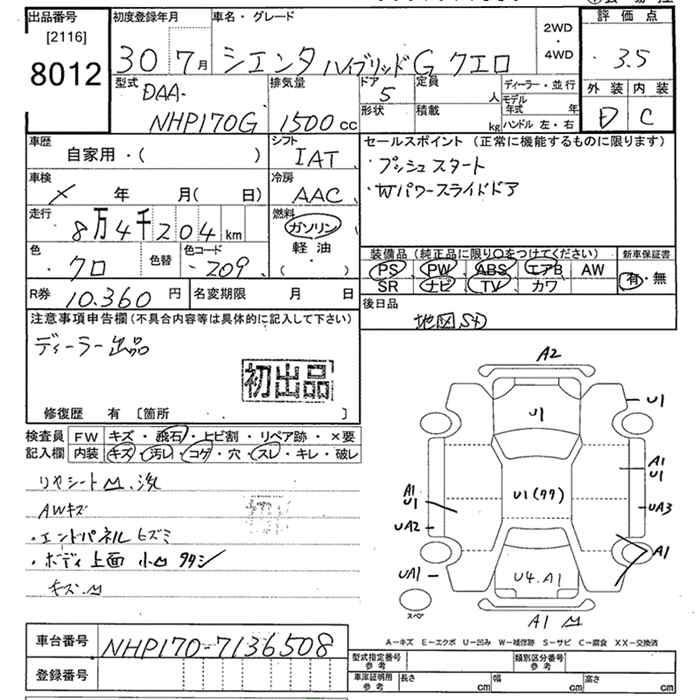 出品番号
[2116]
8012
初度登録年月
30 7月
車名・グレード
シエンタ ハイブリッドG クエロ
2WD
・
4WD
評価点
3.5
外装 内装
D C
型式
DAA-
NHP170G
排気量
1500cc
ドア
5
形状
定員
人
積載
kg
ディーラー・並行
モデル年式 年
ハンドル 左・右
車歴
自家用・( )
シフト
IAT
車検
× 年 月( 日)
冷房
AAC
走行
8万4千204km
燃料
ガソリン
軽油
・( )
色
クロ
色替
色コード
209
R券 10.360円
名変期限 月 日
セールスポイント (正常に機能するものに限ります)
・プッシュスタート
・Wパワースライドドア
装備品(純正品に限り○をつけてください)
PS PW ABS エアB AW
SR ナビ TV カワ
新車保証書
有・無
後日品
地図SD
注意事項申告欄(不具合内容等は具体的に記入して下さい)
ディーラー出品
初出品
修復歴 有 [箇所 ]
検査員記入欄
FW キズ・飛石・トビ割・リペア跡・×要
内装 キズ・汚レ・コゲ・穴・スレ・キレ・破レ
AWキズ
・エンドパネルヒズミ
・ボディ上面 小
キズ
A2
U1
U1
A1
U1
A1
U1
UA2
U1(77)
UA3
UA1
U4.A1
A1
A1
スペア
A-キズ E-エクボ U-凹み W-補修跡 S-サビ C-腐食 XX-交換済
車台番号
NHP170-7136508
登録番号
型式指定番号
参考
類別区分番号
参考
車庫証明用
参考
長さ cm
幅 cm
高さ cm